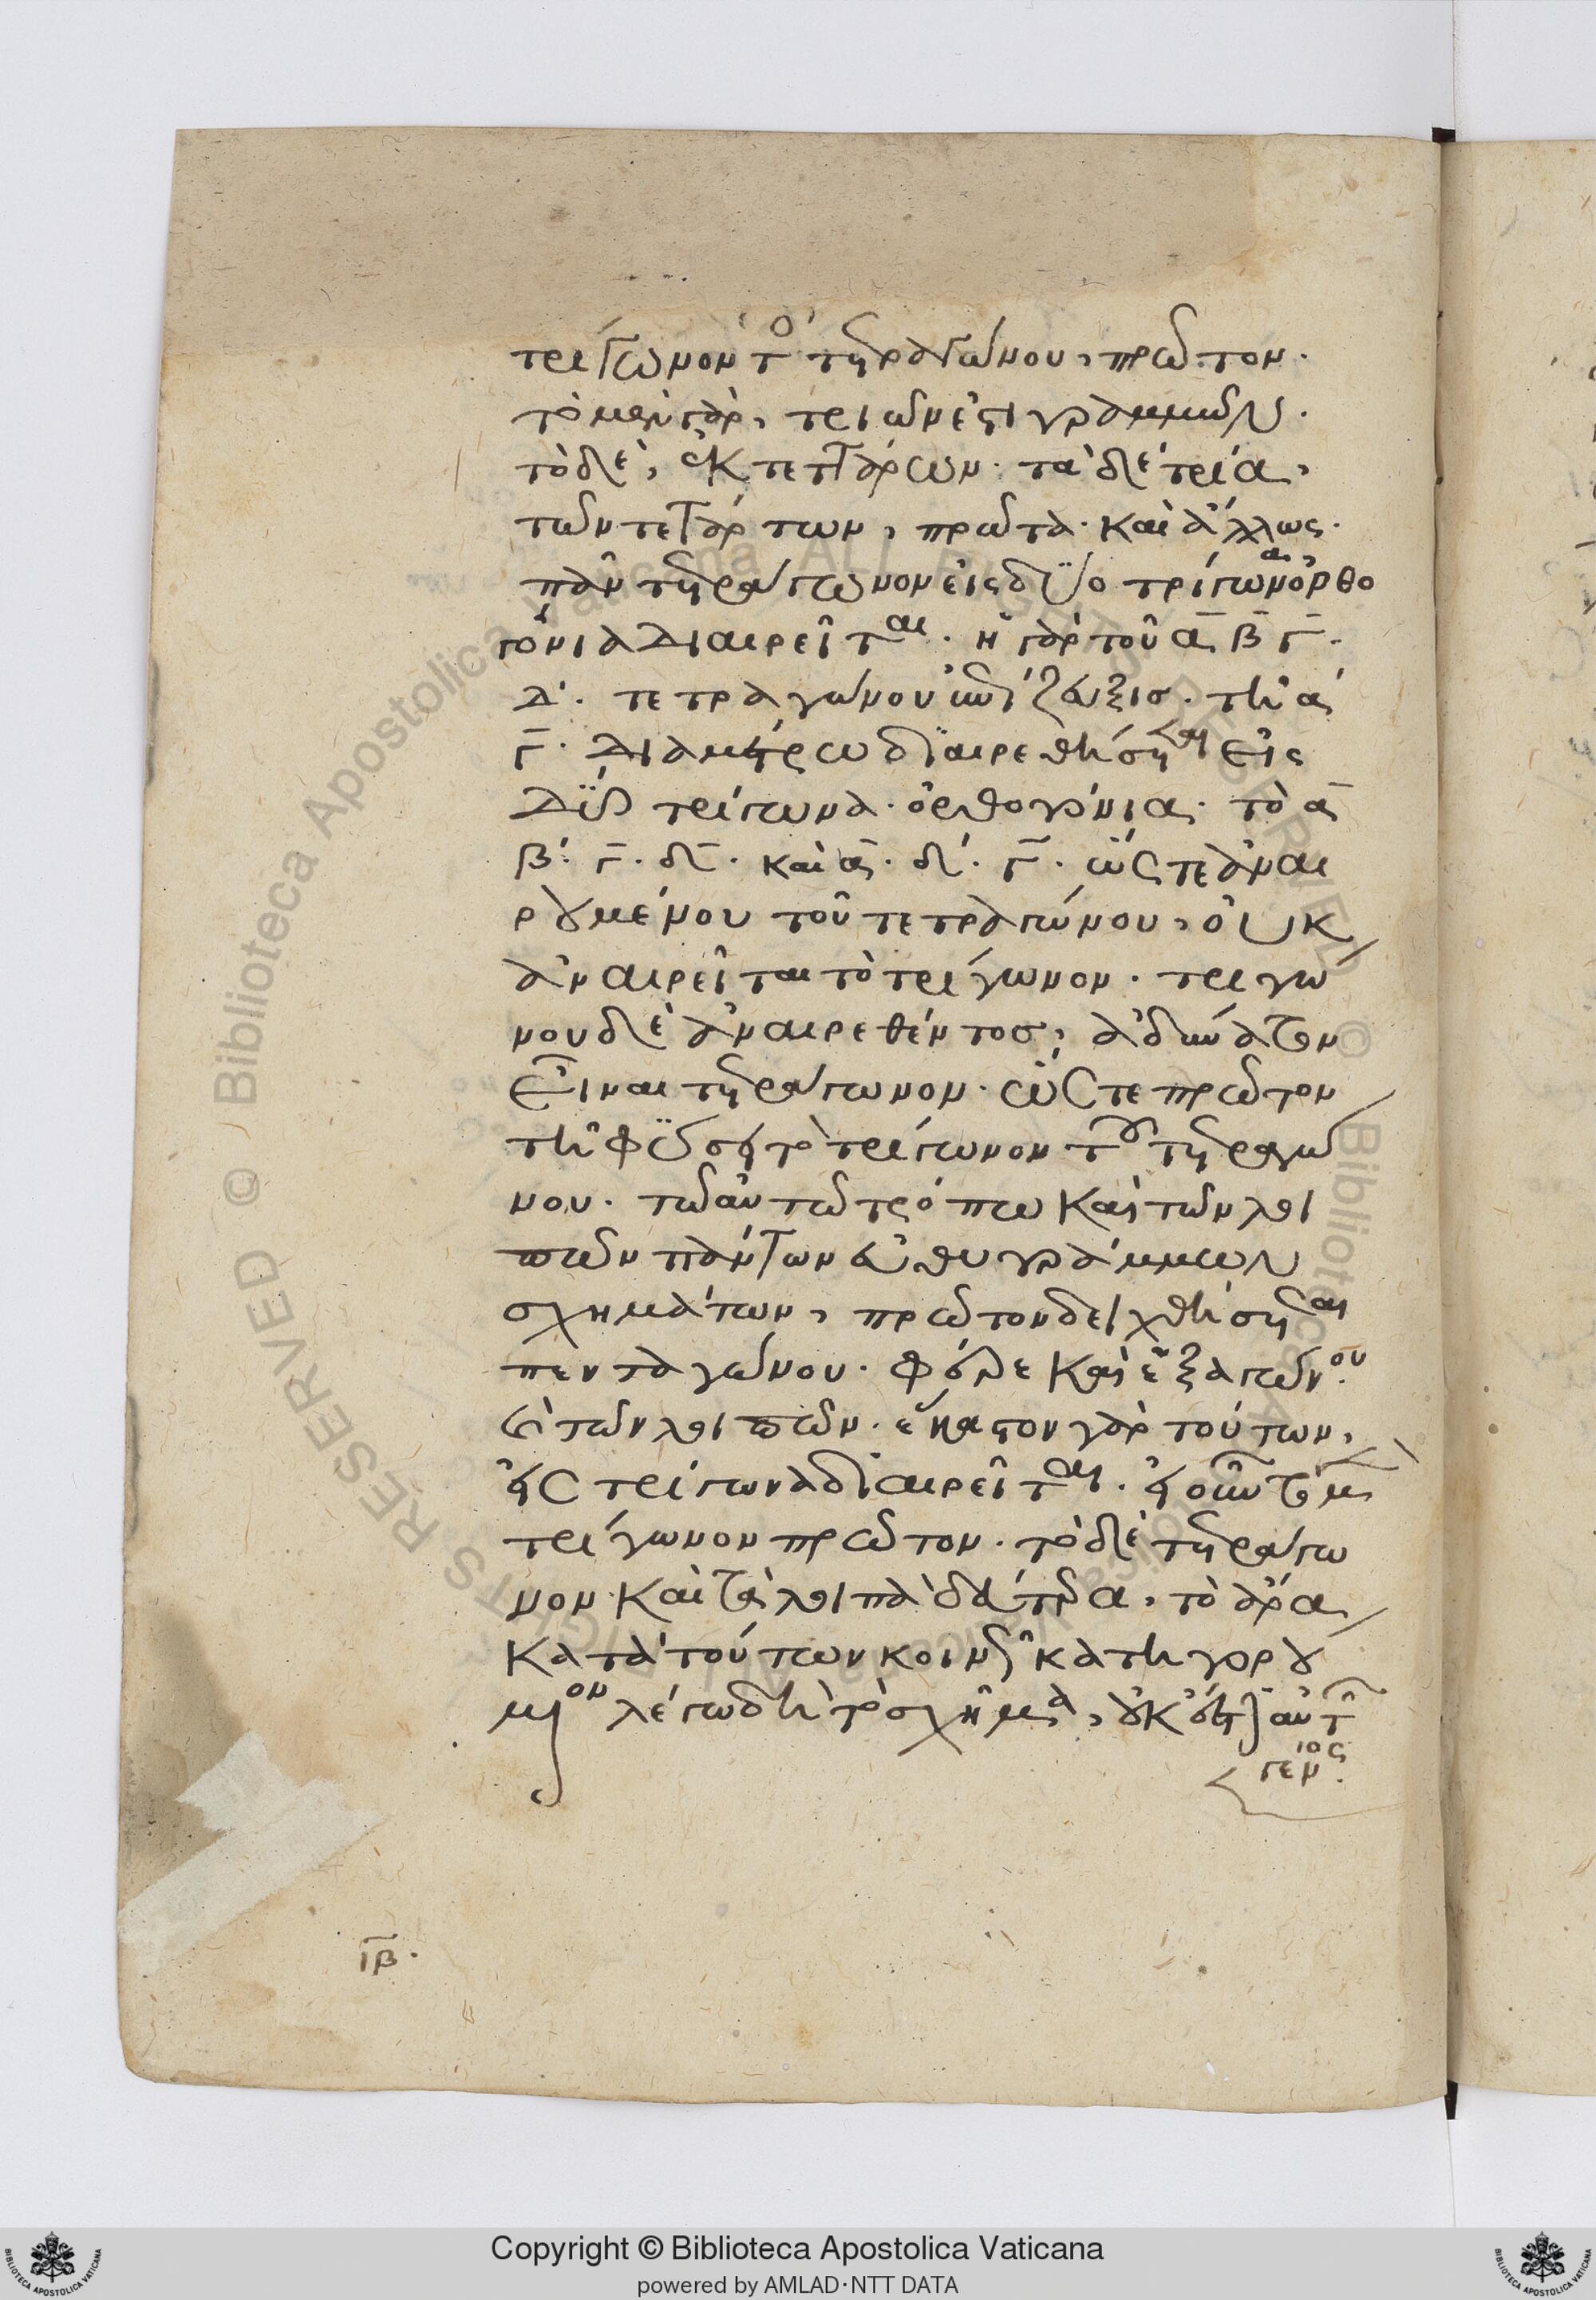 τρίγωνον τοῦ τετραγώνου, πρῶτον.
τὸ μὲν γὰρ, τριῶν ἐστὶ γραμμῶν.
τὸ δὲ, ἐκ τεττάρων. τὰ δὲ τρία,
τῶν τετάρτων, πρῶτα. καὶ ἄλλως.
πᾶν τετράγωνον εἰς δύο τρίγωνα ὀρθο
γώνια διαιρεῖται. ἡ γὰρ τοῦ α β γ.
δ. τετραγώνου ἐπίζευξισ. τῆ α
γ. διαμέτρω διαιρεθήσεται εἰς
δύο τρίγωνα. ὀρθογώνια. τὸ α
β. γ. δ. καὶ α. δ. γ. ὥστε ἀναι
ρουμένου τοῦ τετραγώνου, οὐκ
ἀναιρεῖται τὸ τρίγωνον. τριγώ
νου δὲ ἀναιρεθέντοσ, ἀδύνατον
εἶναι τετράγωνον. ὥστε πρῶτον
τῆ φύσει τὸ τρίγωνον τοῦ τετραγώ
νου. τῶ αὐτῶ τρόπω καὶ τῶν λοι
πῶν πάντων εὐθυγράμμων
σχημάτων, πρῶτον δειχθήσεται
πενταγώνου. φέρε καὶ ἑξαγώνου
καὶ τῶν λοιπῶν. ἕκαστον γὰρ τούτων,
εἰς τρίγωνα διαιρεῖται. εἰ οὖν τὸ μὲν
τρίγωνον πρῶτον. τὸ δὲ τετράγω
νον καὶ τὰ λοιπὰ δεύτερα. τὸ ἄρα
κατὰ τούτων κοινῆ κατηγορού
μενον λέγω δὴ τὸ σχῆμα, οὐκ ἔστιν αὐτῶν
γένος.
ιβ.
Copyright © Biblioteca Apostolica Vaticana
powered by AMLAD·NTT DATA